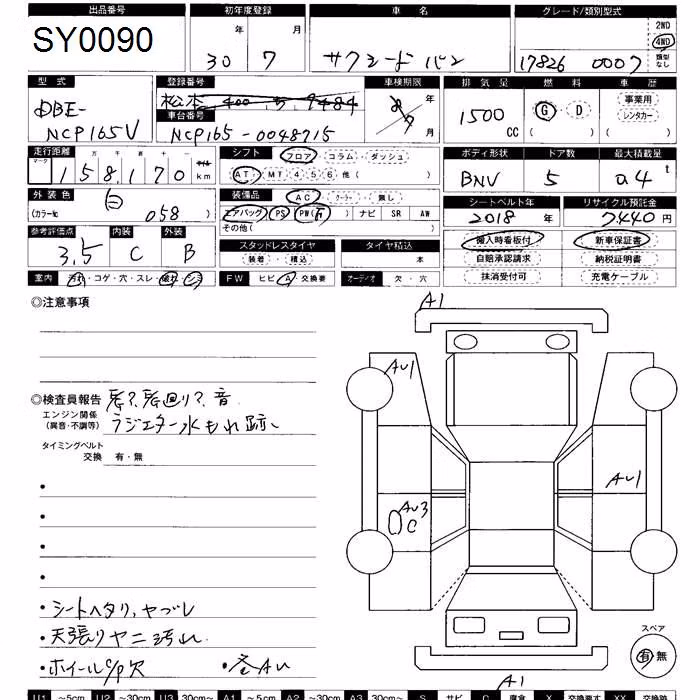 出品番号 初年度登録 車名 グレード/類別型式
SY0090 30年 7月 サクシードバン 17826 0007 2ND 4ND 類型なし
型式 登録番号 車検期限 排気量 燃料 車歴
DBE-NCP165V 松本 400 ち 9484 年 7月 1500CC G・D ( ) 事業用 レンタカー ( )
車台番号
NCP165-0048715
走行距離 シフト フロア・コラム・ダッシュ ボディ形状 ドア数 最大積載量
マーク 十万 万 千 百 十 一
158,170 km AT・MT 4 5 6 他 ( ) BNV 5 0.4 t
外装色 装備品 AC・クーラー・無し シートベルト年 リサイクル預託金
白 (カラーNo 058 ) エアバッグ PS PW(同) ナビ SR AW 2018年 7440円
その他 ( )
参考評価点 内装 外装 搬入時看板付 新車保証書
3.5 C B スタッドレスタイヤ タイヤ積込 自賠承認請求 納税証明書
装着・積込 本 抹消受付可 充電ケーブル
室内 汚れ・コゲ・穴・スレ・破れ・シミ FW ヒビ・A・交換要 オーディオ 欠・穴
◎注意事項
A1
◎検査員報告
エンジン関係
(異音・不調等) ラジエター水もれ跡
タイミングベルト
交換 有・無
AU1
AU1
AU3
C
・シートヘタリ,ヤブレ
・天張りヤニ汚れ
・ホイールC/P欠 ・各AU
スペア
有 無
A1
U1 ~5cm U2 ~30cm U3 30cm~ A1 ~5cm A2 ~30cm A3 30cm~ S サビ C 腐食 X 交換要す XX 交換跡